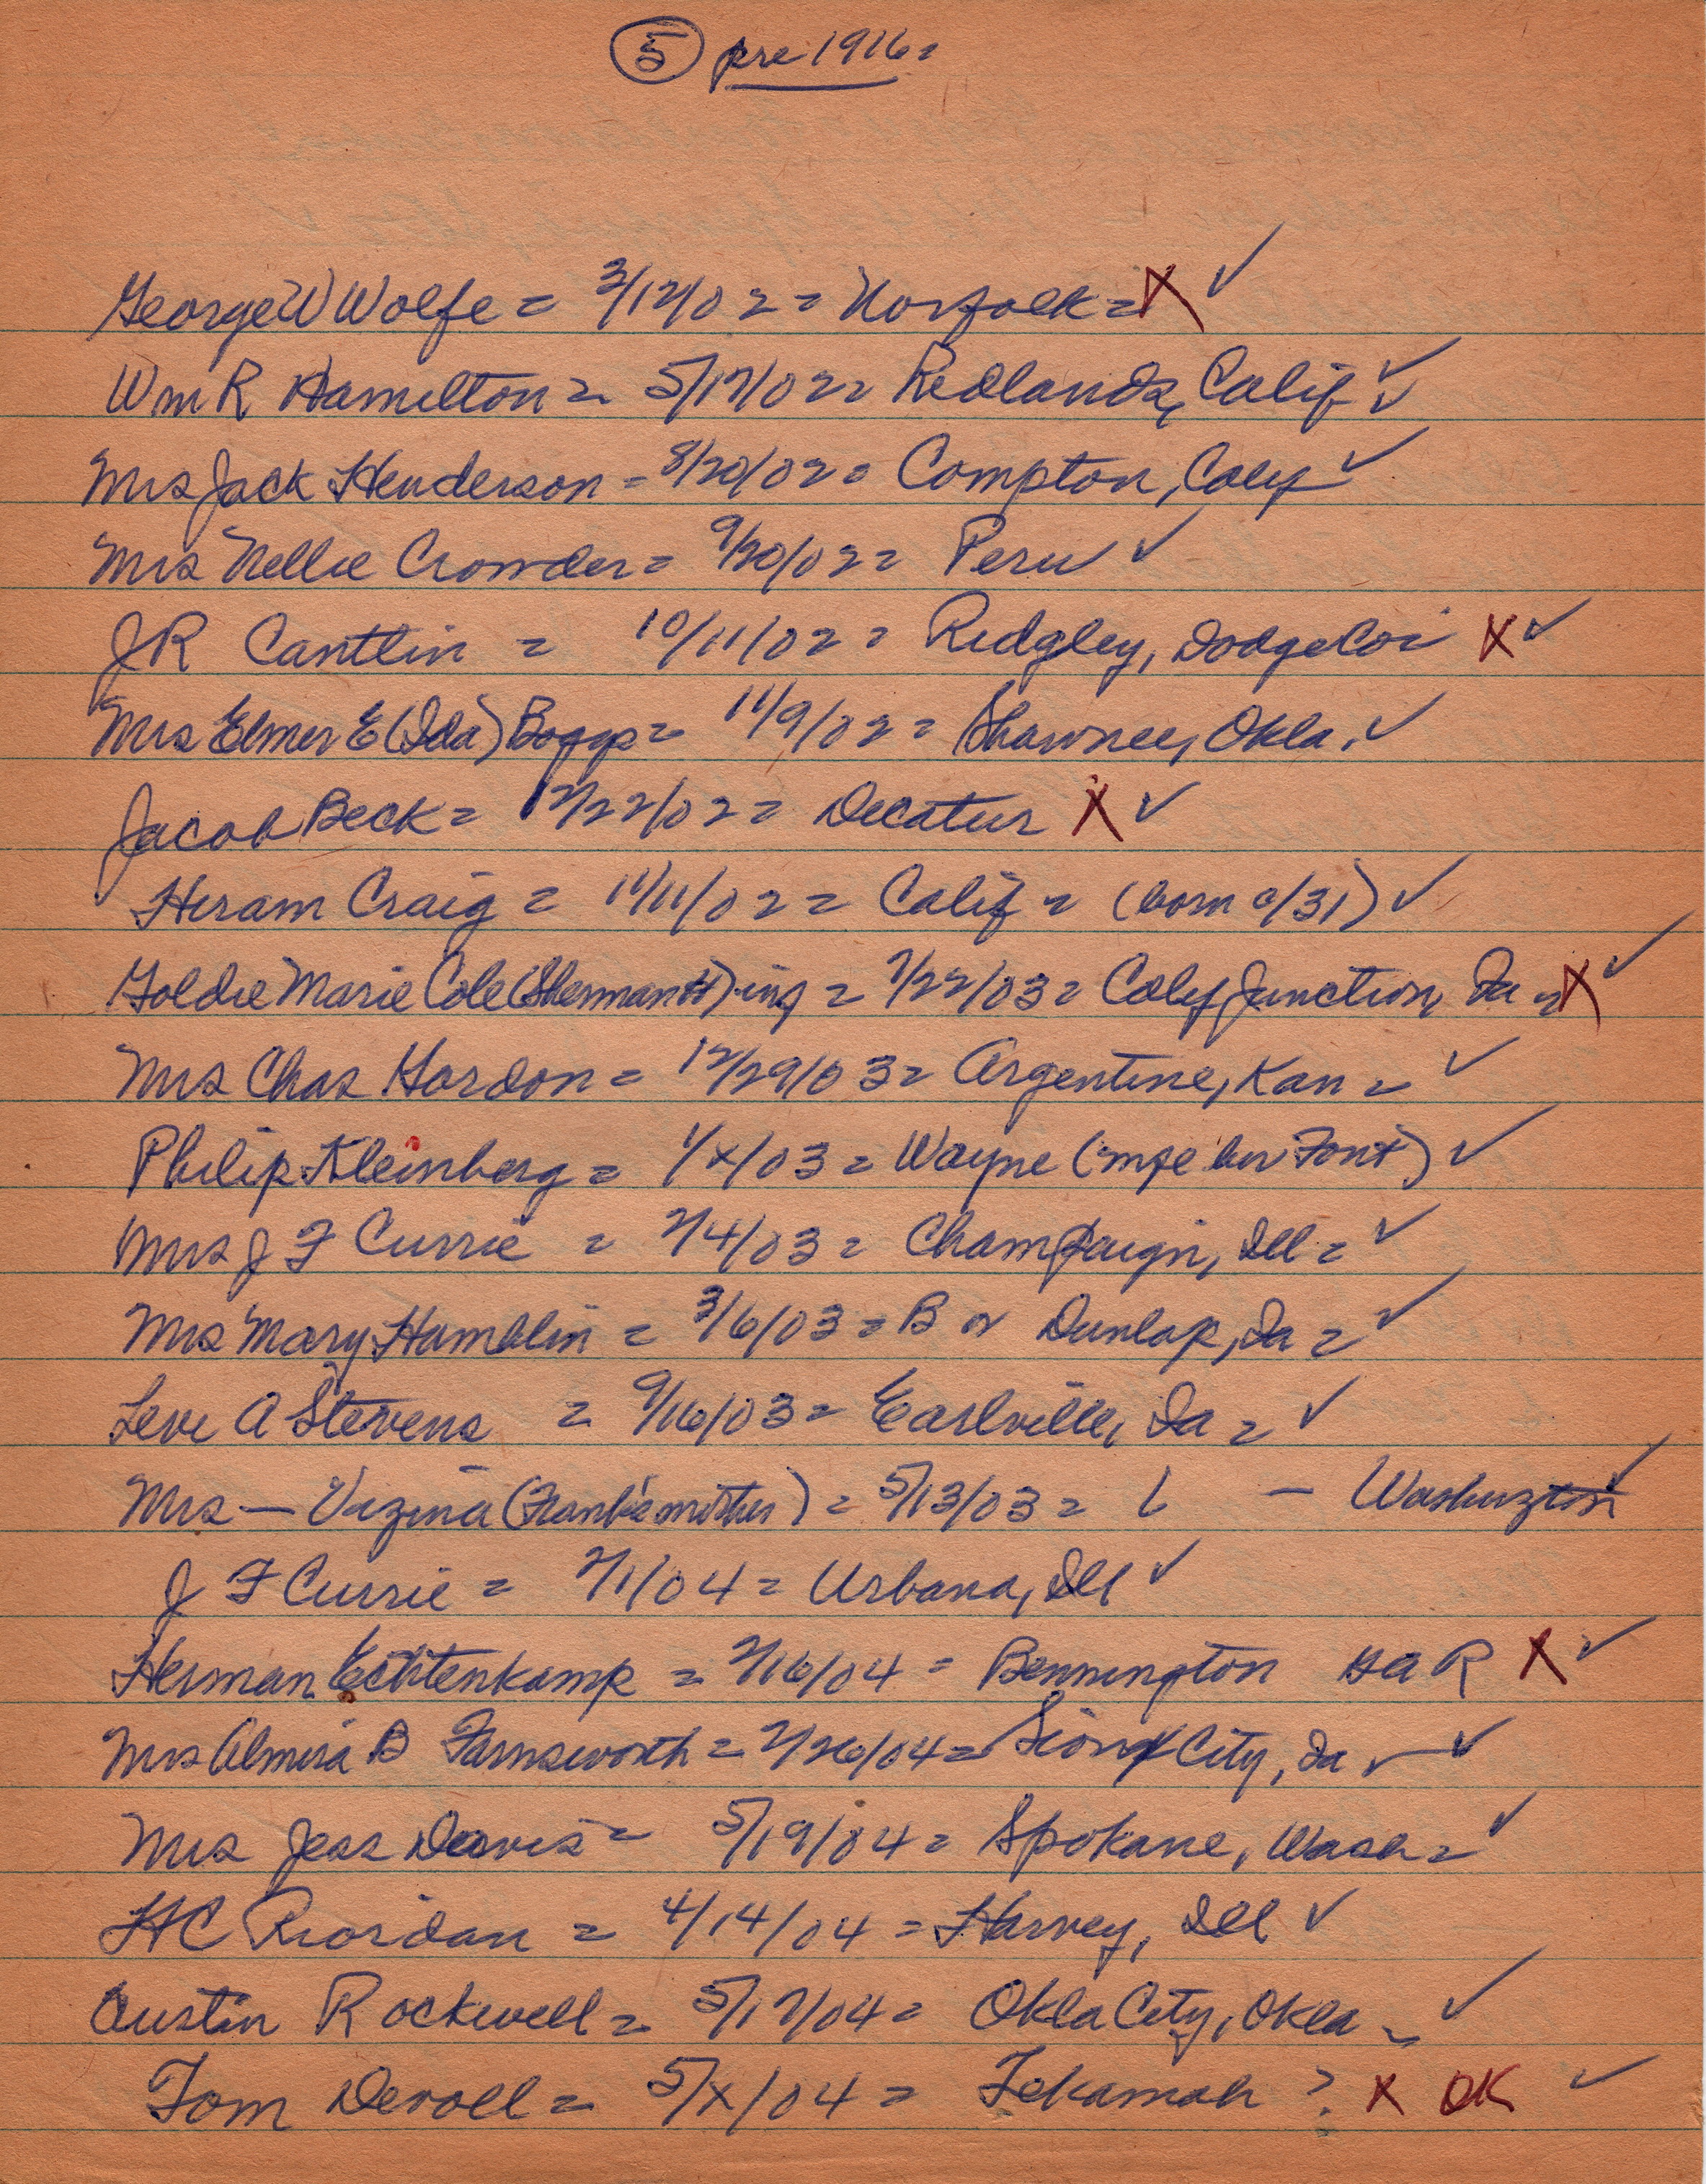 5 pre 1916=
George W Wolfe = 3/12/02 = Norfolk = X ✓
Wm R Hamilton = 5/17/02 = Redlands, Calif ✓ ✓
Mrs Jack Henderson = 8/20/02 = Compton, Calif ✓
Mrs Nellie Crowder = 9/20/02 = Peru ✓
J R Cantlin = 10/11/02 = Ridgley, Dodge Co X ✓
Mrs Elmer E (Ida) Boggs = 11/9/02 = Shawnee, Okla. ✓
Jacob Beck = 12/22/02 = Decatur X ✓
Hiram Craig = 11/11/02 = Calif = (born c/31) ✓
Goldie Marie Cole (Sherman H)-inf = 7/22/03 = Calif Junction, Ia = X ✓
Mrs Chas Gordon = 12/29/03 = Argentine, Kan = ✓
Philip Kleinberg = 1/x/03 = Wayne ✓
Mrs J F Currie = 2/4/03 = Champaign, Ill = ✓
Mrs Mary Hamblin = 3/6/03 = B or Dunlap, Ia = ✓
Levi A Stevens = 9/16/03 = Earlville, Ia = ✓
Mrs — Vazina (Frank's mother) = 5/13/03 = — Washington ✓
J F Currie = 2/1/04 = Urbana, Ill ✓
Herman Echtenkamp = 2/16/04 = Bennington G A R X ✓
Mrs Almira B Farnsworth = 2/26/04 = Sioux City, Ia ✓ ✓
Mrs Jess Davis = 5/19/04 = Spokane, Wash = ✓
H C Riordan = 4/14/04 = Harvey, Ill ✓
Austin Rockwell = 5/17/04 = Okla City, Okla = ✓
Tom Devoll = 5/x/04 = Tekamah ? X OK ✓